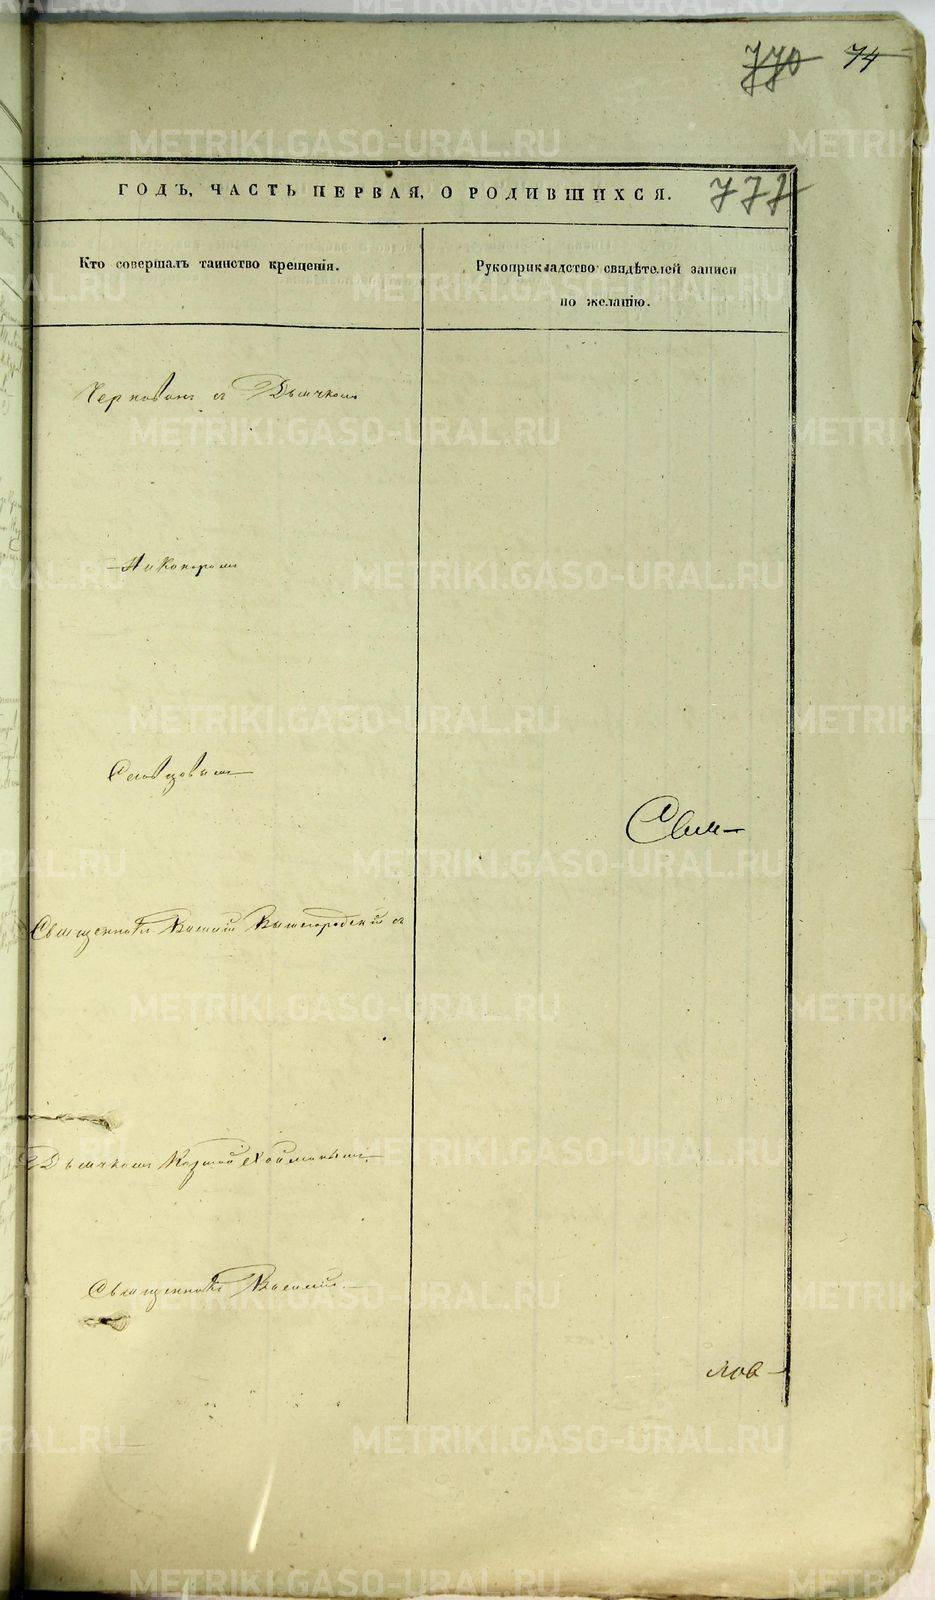 770 74
ГОДЪ, ЧАСТЬ ПЕРВАЯ, О РОДИВШИХСЯ. 777
Кто совершалъ таинство крещенія.
Рукоприкладство свидѣтелей записи
по желанію.
съ Дьячкомъ
Никаноромъ
Словцовымъ
Свя-
Священникъ Василій Вышегородскій съ
Дьячкомъ
Священникъ Василій
лов-
METRIKI.GASO-URAL.RU